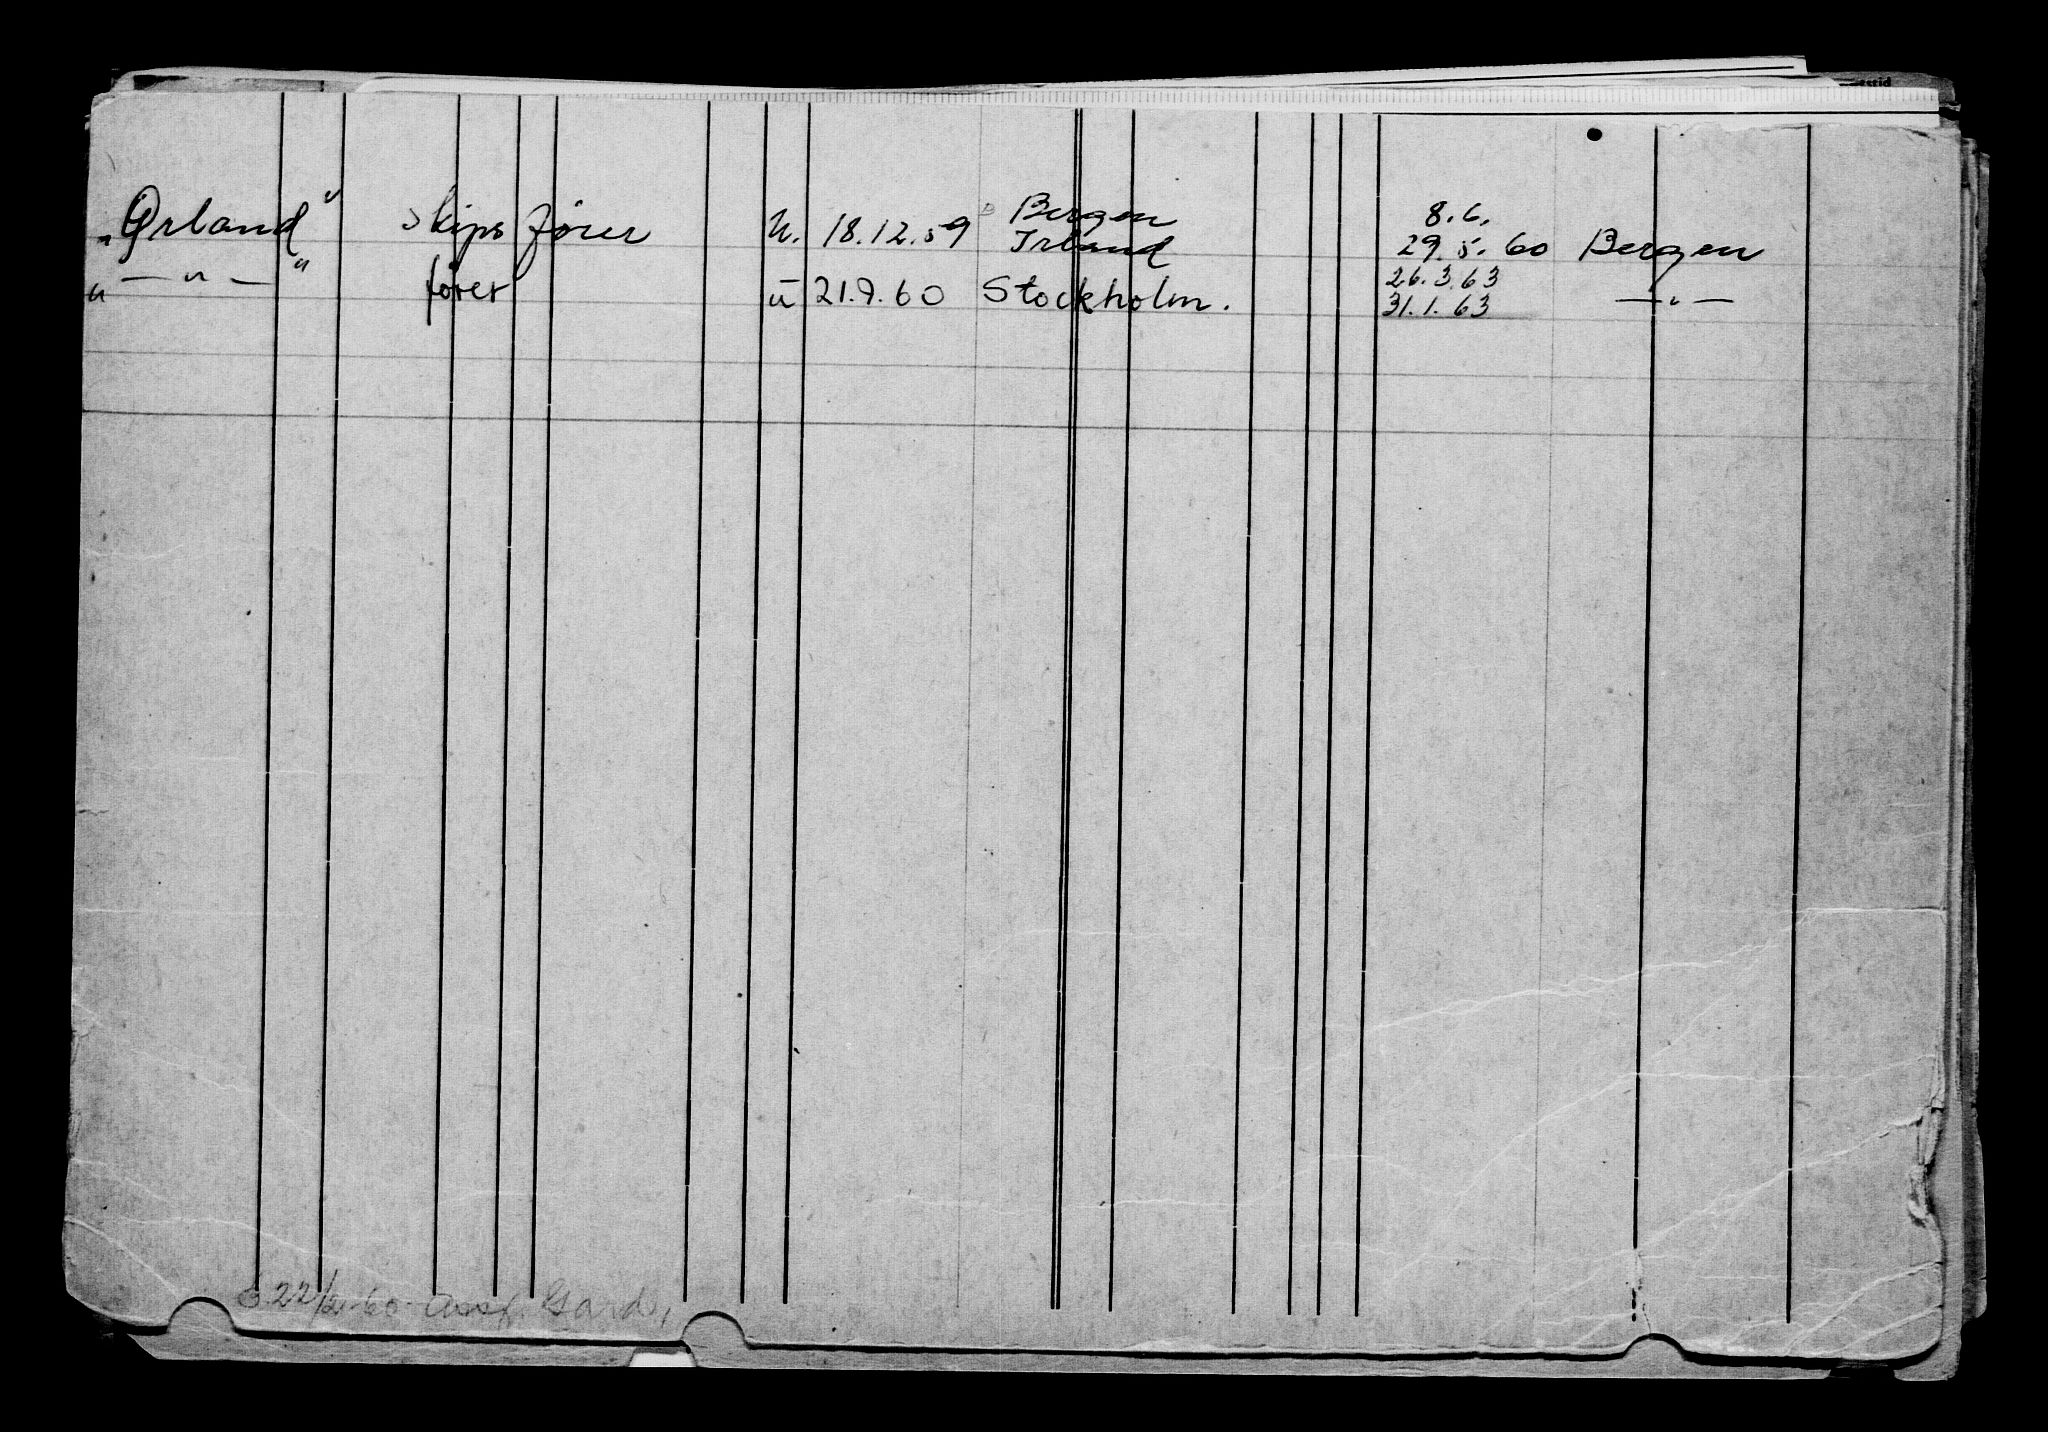 "Ørland" Skipsfører u. 18.12.59 Bergen Irland 8.6. 29.5.60 Bergen
" — " — " fører u 21.9.60 Stockholm. 26.3.63 31.1.63 — " —
22/2-60